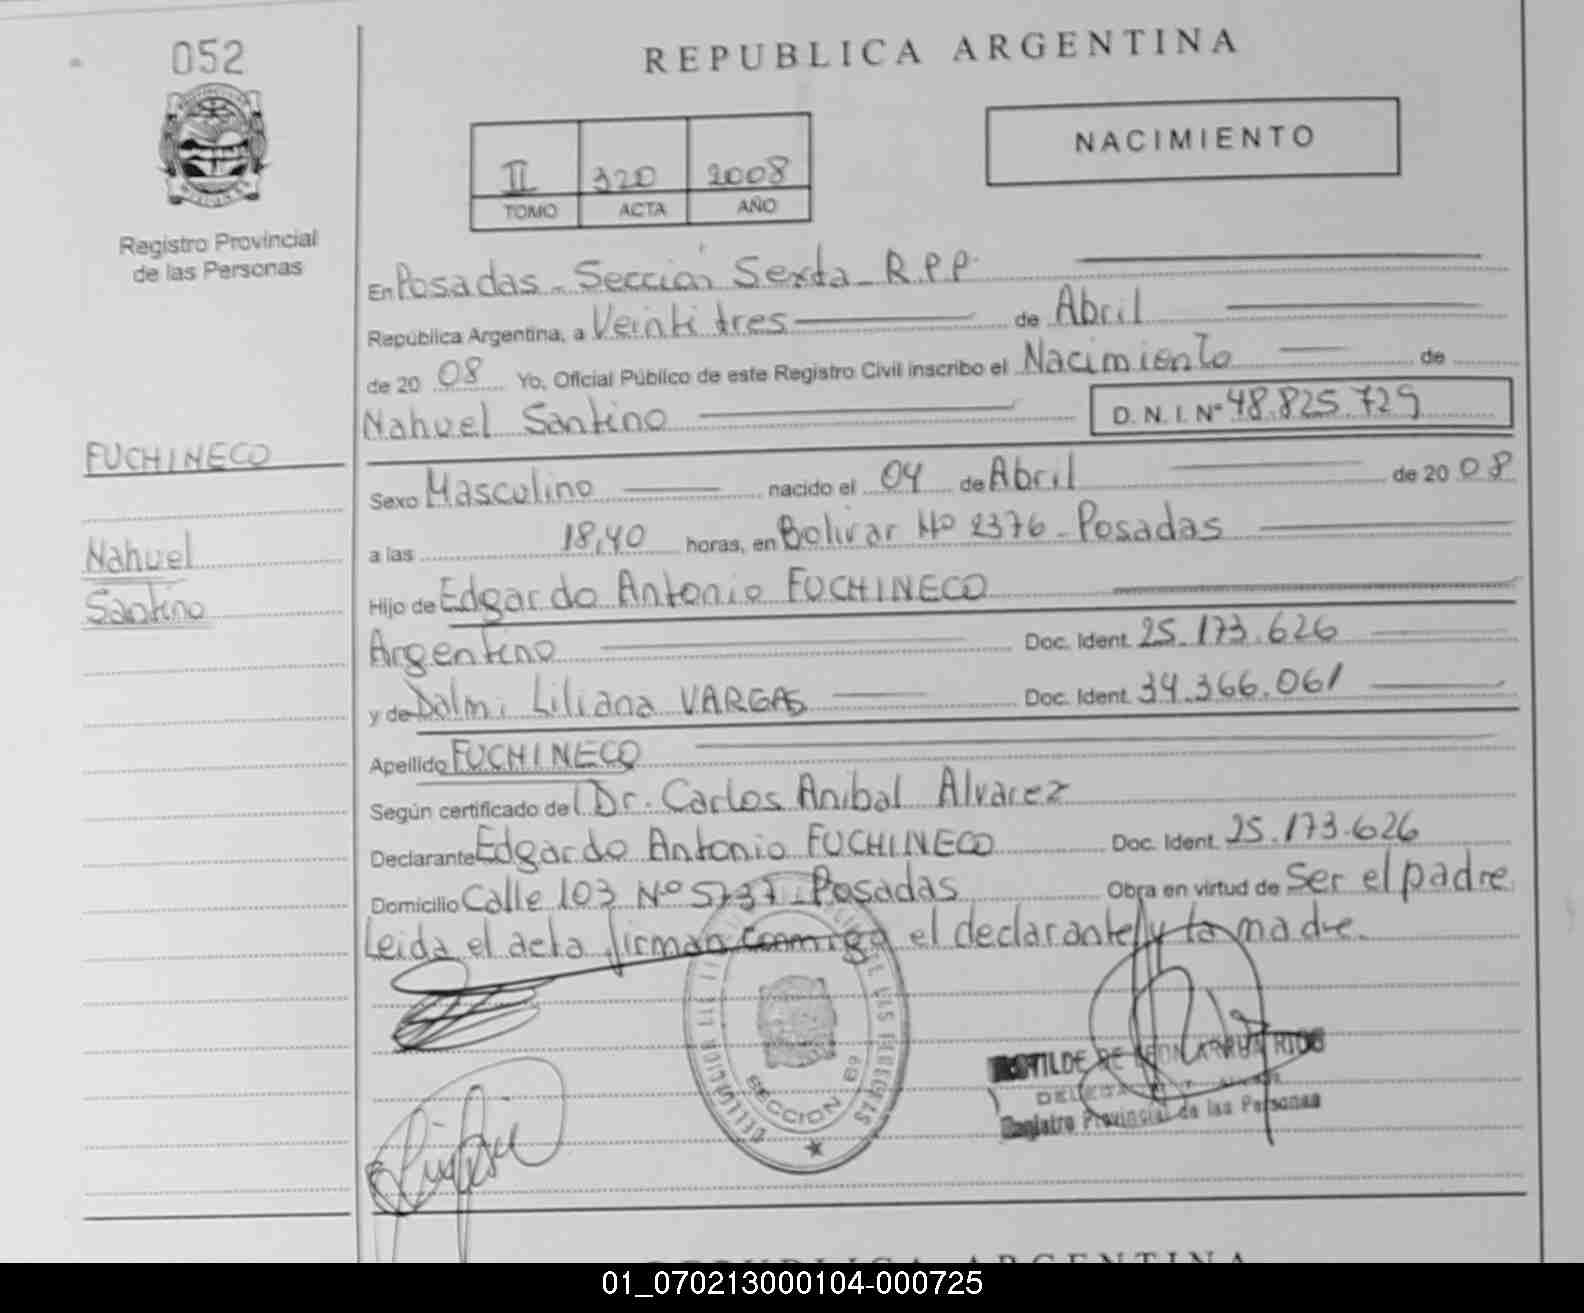 052
REPUBLICA ARGENTINA
NACIMIENTO
II 320 2008
TOMO ACTA AÑO
Registro Provincial
de las Personas
En Posadas - Sección Sexta - R.P.P.
República Argentina, a Veintitres de Abril
de 20 08 Yo, Oficial Público de este Registro Civil inscribo el Nacimiento de
Nahuel Santino D.N.I. Nº 48.825.729
FUCHINECO
Sexo Masculino nacido el 04 de Abril de 20 08
a las 18,40 horas, en Bolivar Nº 2376 - Posadas
Nahuel
Santino
Hijo de Edgardo Antonio FUCHINECO
Argentino Doc. Ident. 25.173.626
y de Dalmi Liliana VARGAS Doc. Ident. 34.366.061
Apellido FUCHINECO
Según certificado del Dr. Carlos Anibal Alvarez
Declarante Edgardo Antonio FUCHINECO Doc. Ident. 25.173.626
Domicilio Calle 103 Nº 5737 - Posadas Obra en virtud de Ser el padre
Leida el acta firman conmigo el declarante y la madre.
SECCION 6º
Registro Provincial de las Personas
REPUBLICA ARGENTINA
01_070213000104-000725